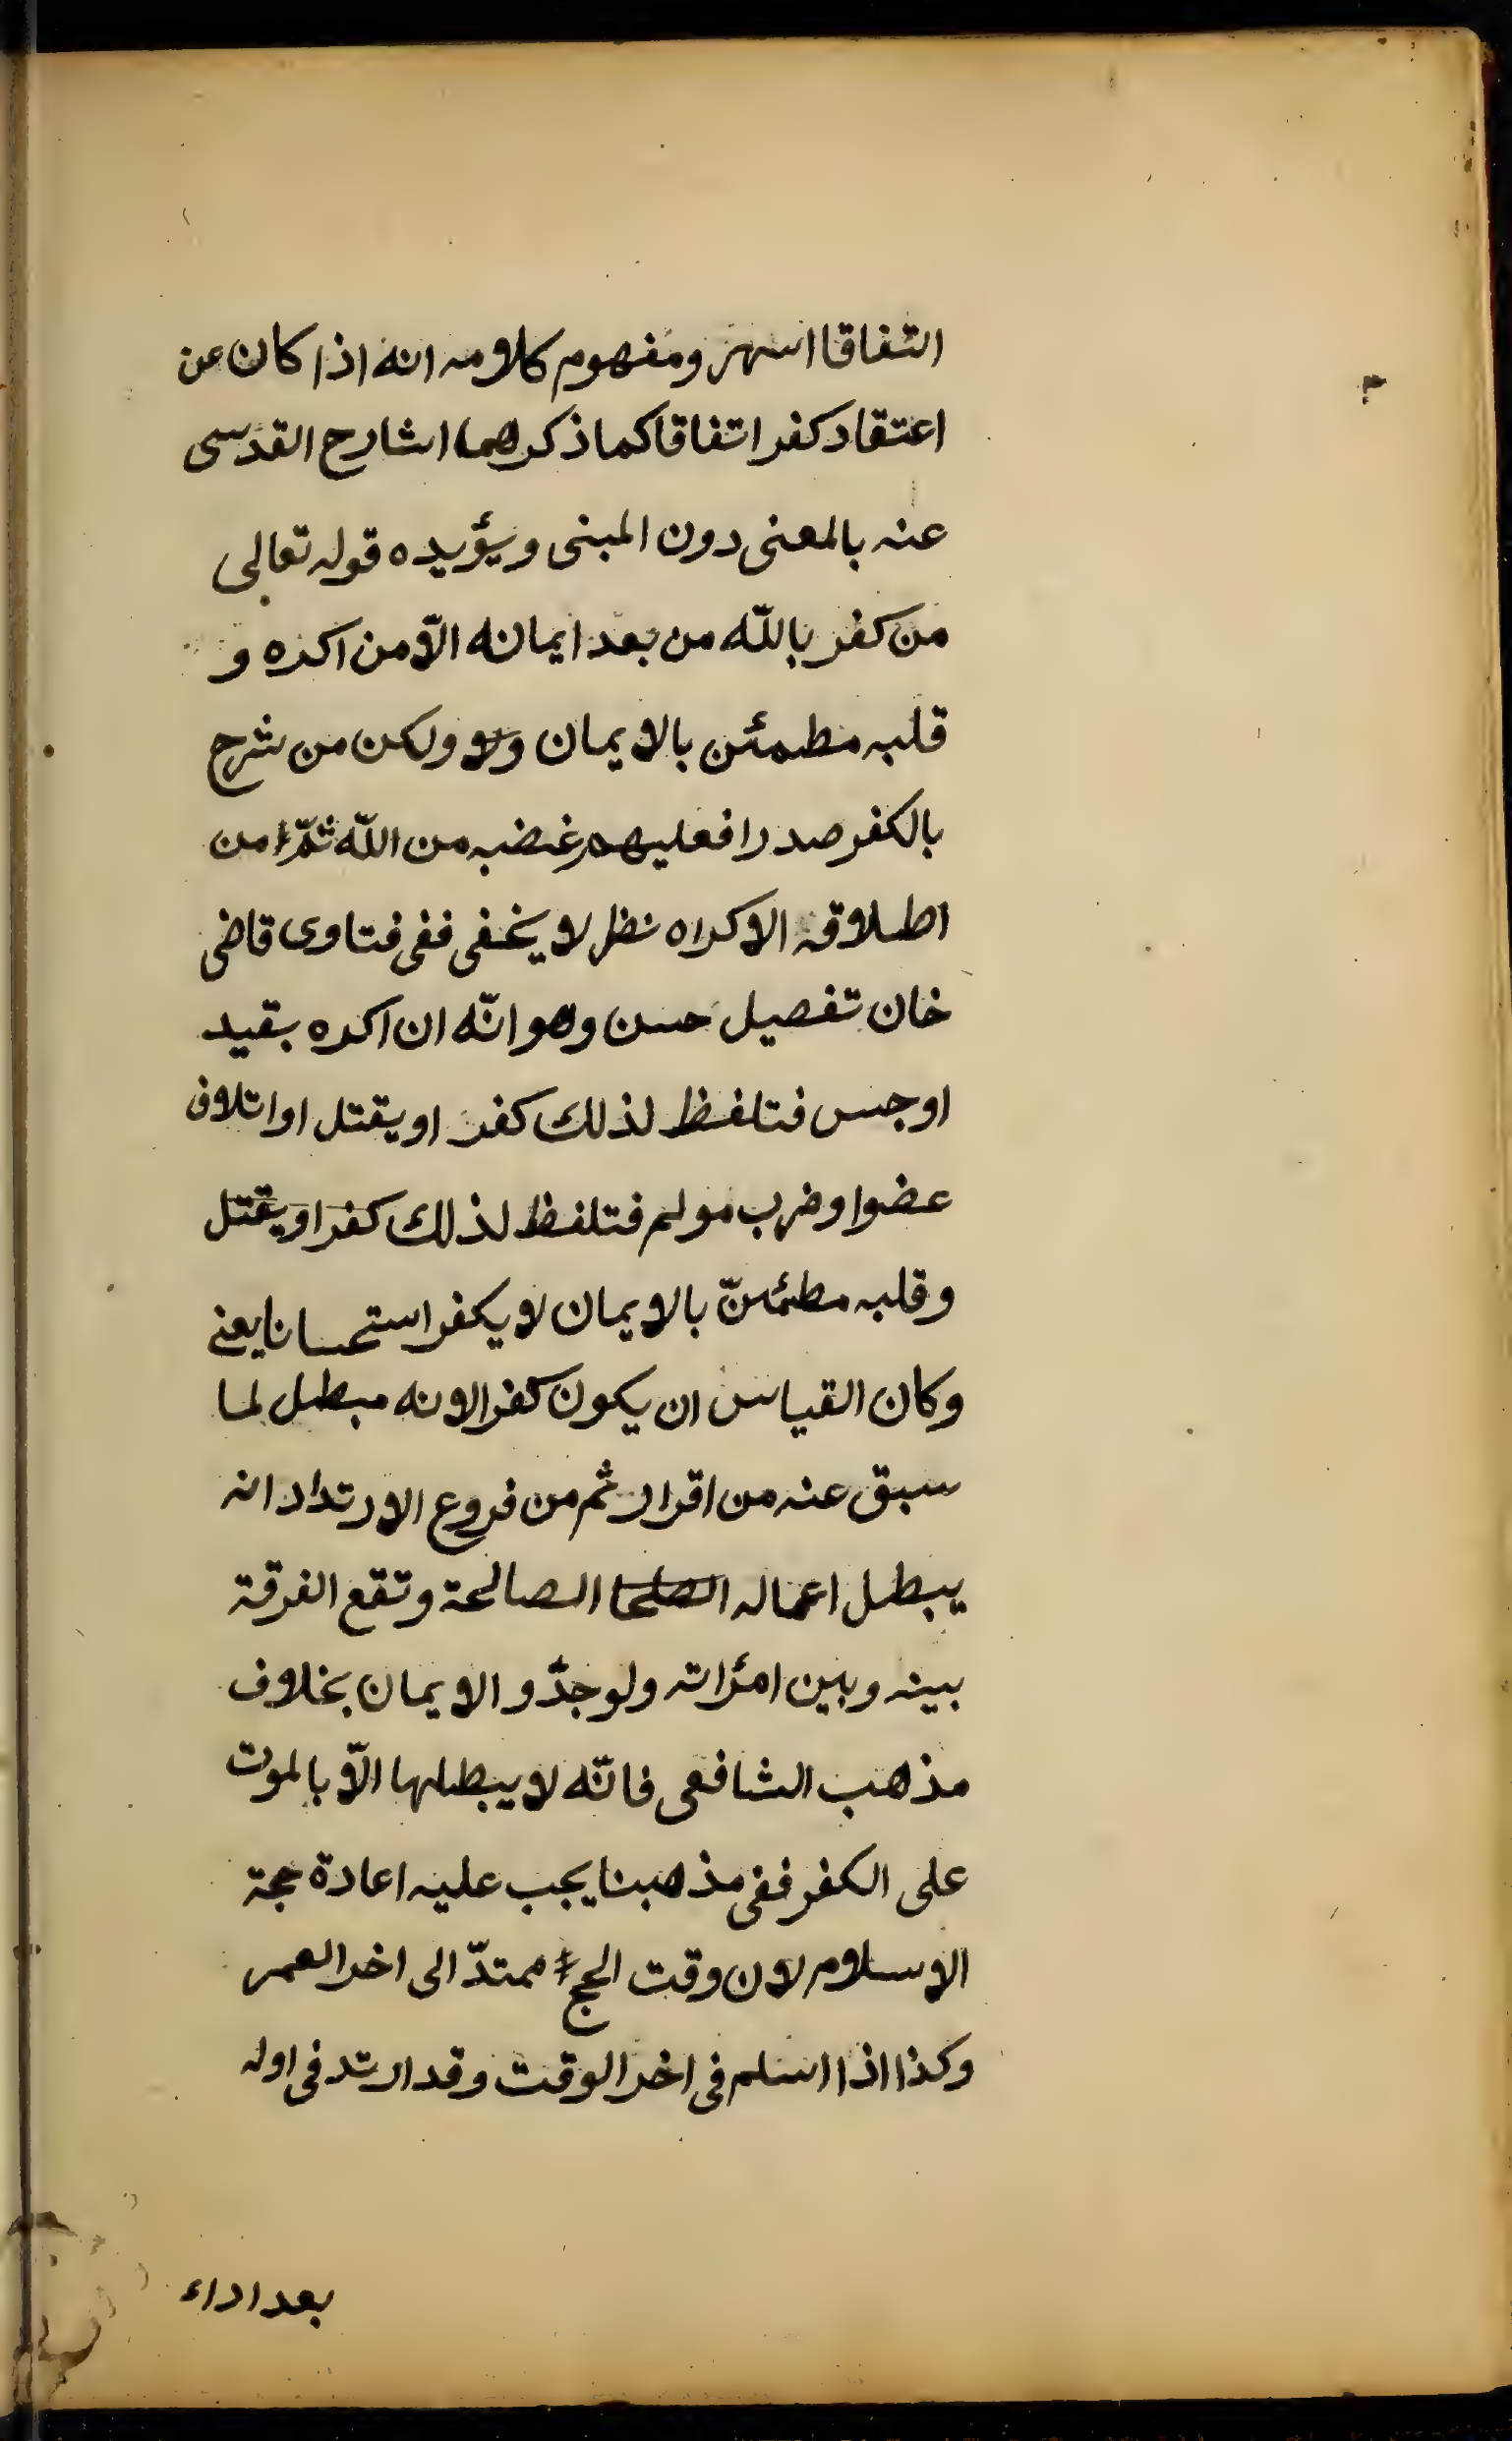 اتفاقا اسهر ومفهوم كلامه انه اذا كان عن
اعتقاد كفر اتفاقا كما ذكرهما اشارح القدسى
عنه بالمعنى دون المبنى ويؤيده قوله تعالى
من كفر بالله من بعد ايمانه الّا من اكره و
قلبه مطمئن بالايمان ولا ولكن من شرح
بالكفر صدرا فعليهم غضب من الله ثمّ من
اطلاقه الاكراه نظر لا يخفى ففى فتاوى قاضى
خان تفصيل حسن وهو انّه ان اكره بقيد
او حبس فتلفظ لذلك كفر او يقتل او اتلاف
عضوا وضرب مولم فتلفظ لذلك كفر او يقتل
وقلبه مطمئنّ بالايمان لا يكفر استحسانا يعنى
وكان القياس ان يكون كفرا لانه مبطل لما
سبق عنه من اقرار ثم من فروع الارتداد انه
يبطل اعماله الصلحا الصالحة وتقع الفرقة
بينه وبين امرأته ولو جدّد الايمان بخلاف
مذهب الشافعى فانّه لا يبطلها الّا بالموت
على الكفر ففى مذهبنا يجب عليه اعادة حجة
الاسلام لان وقت الحج ممتدّ الى اخر العمر
وكذا اذا اسلم فى اخر الوقت وقد ارتد فى اوله
بعد اداء